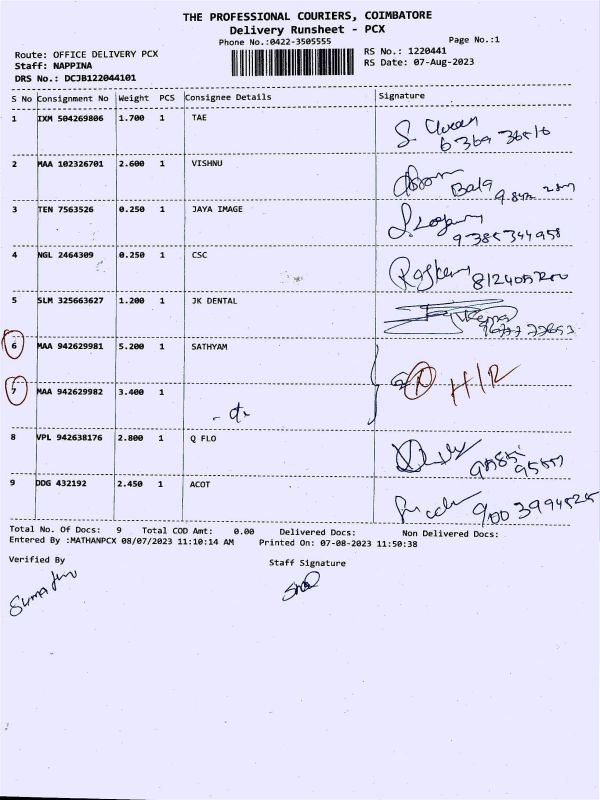 THE PROFESSIONAL COURIERS, COIMBATORE
Delivery Runsheet - PCX
Phone No.:0422-3505555 Page No.:1
Route: OFFICE DELIVERY PCX RS No.: 1220441
Staff: NAPPINA RS Date: 07-Aug-2023
DRS No.: DCJB122044101
S No Consignment No Weight PCS Consignee Details Signature
1 IXM 504269806 1.700 1 TAE
2 MAA 102326701 2.600 1 VISHNU
Bala
3 TEN 7563526 0.250 1 JAYA IMAGE
9385344958
4 NGL 2464309 0.250 1 CSC
5 SLM 325663627 1.200 1 JK DENTAL
6 MAA 942629981 5.200 1 SATHYAM
7 MAA 942629982 3.400 1
H/R
8 VPL 942638176 2.800 1 Q FLO
9 DDG 432192 2.450 1 ACOT
9003994525
Total No. Of Docs: 9 Total COD Amt: 0.00 Delivered Docs: Non Delivered Docs:
Entered By :MATHANPCX 08/07/2023 11:10:14 AM Printed On: 07-08-2023 11:50:38
Verified By Staff Signature